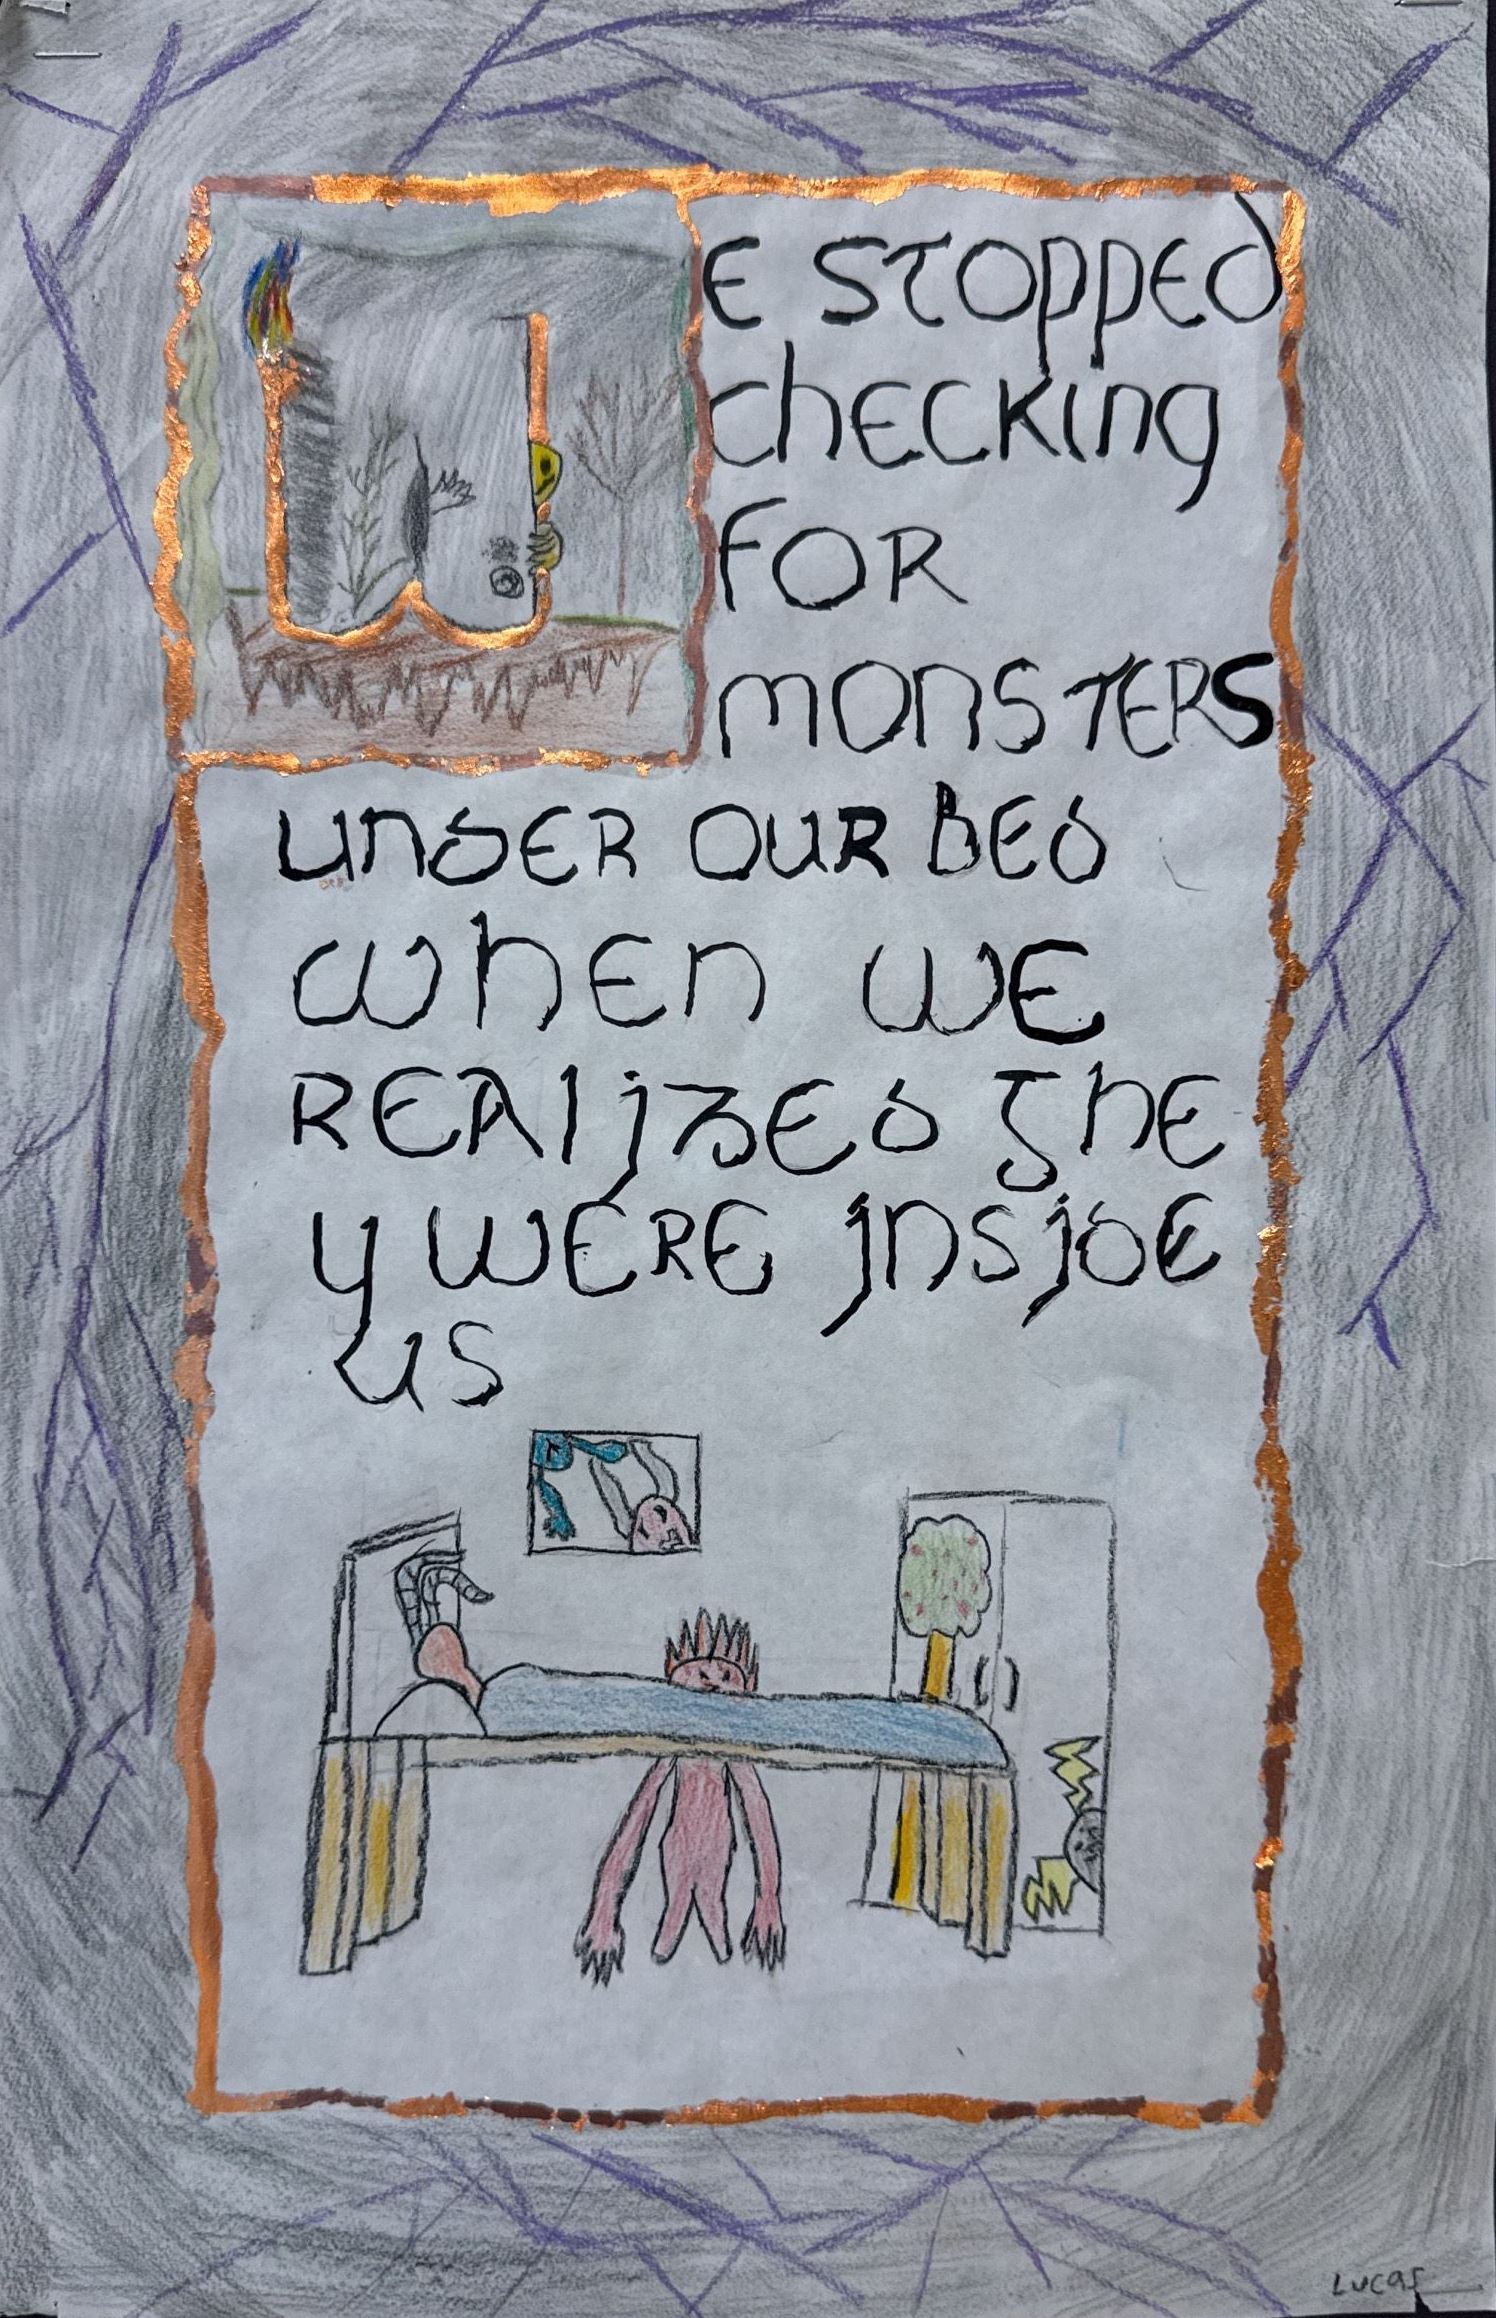 WE STOPPED
CHECKING
FOR
MONSTERS
UNDER OUR BED
WHEN WE
REALIZED THE
Y WERE INSIDE
US
Lucas